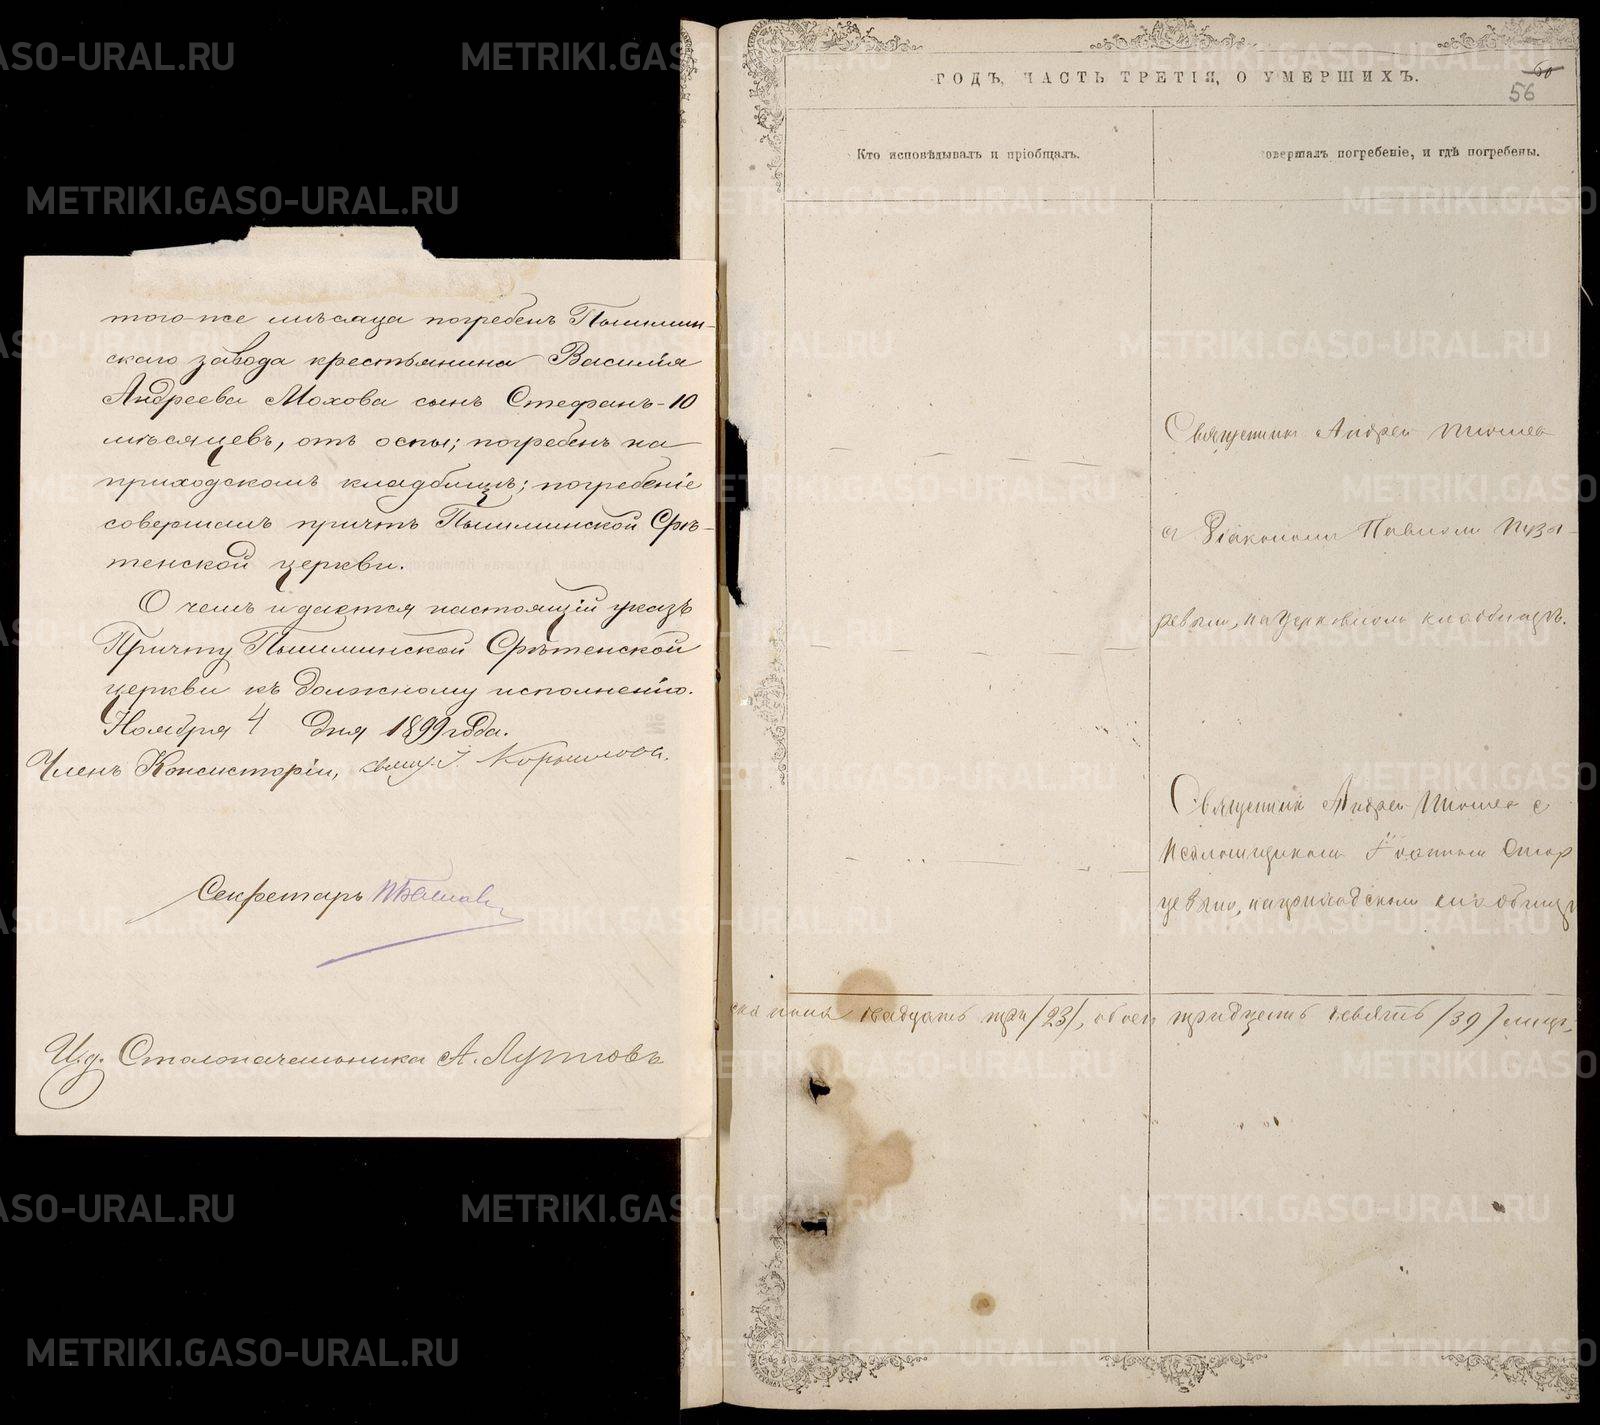 того-же мѣсяца погребенъ Пышмин-
скаго завода крестьянина Василія
Андреева Мохова сынъ Стефанъ-10
мѣсяцевъ, отъ оспы; погребенъ на
приходскомъ кладбищѣ; погребеніе
совершалъ причтъ Пышминской Срѣ-
тенской церкви.
О чемъ и дается настоящій указъ
Причту Пышминской Срѣтенской
церкви къ должному исполненію.
Ноября 4 дня 1899 года.
Членъ Консисторіи, свящ. І.
Секретарь
И.д. Столоначальника А.
ГОДЪ, ЧАСТЬ ТРЕТІЯ, О УМЕРШИХЪ.
56
Кто исповѣдывалъ и пріобщалъ.
совершалъ погребеніе, и гдѣ погребены.
Священникъ Андрей
съ Діакономъ Павломъ Пузы-
ревымъ, на церковномъ кладбищѣ.
Священникъ Андрей с
Псаломщикомъ Іоанномъ Стар
цевымъ, на приходскомъ кладбищѣ
пола двадцать три /23/, обоего тридцать девять /39/ лицъ,
METRIKI.GASO-URAL.RU